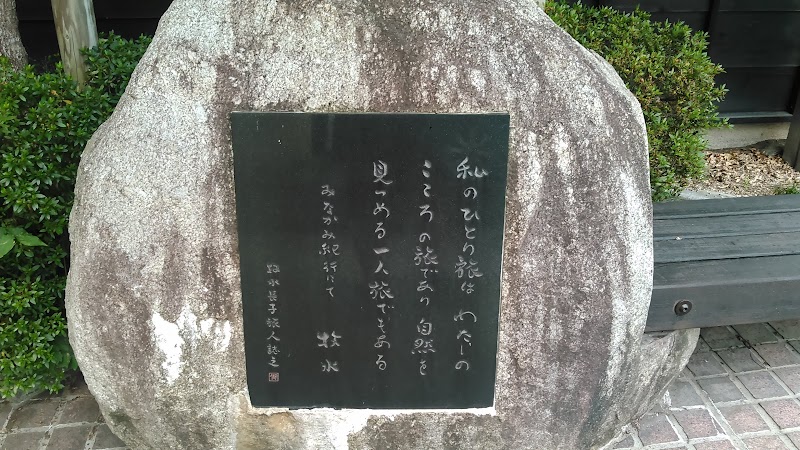 私のひとり旅は わたしの
こころの旅であり 自然を
見つめる一人旅でもある
みなかみ紀行にて 牧水
牧水長子旅人誌之